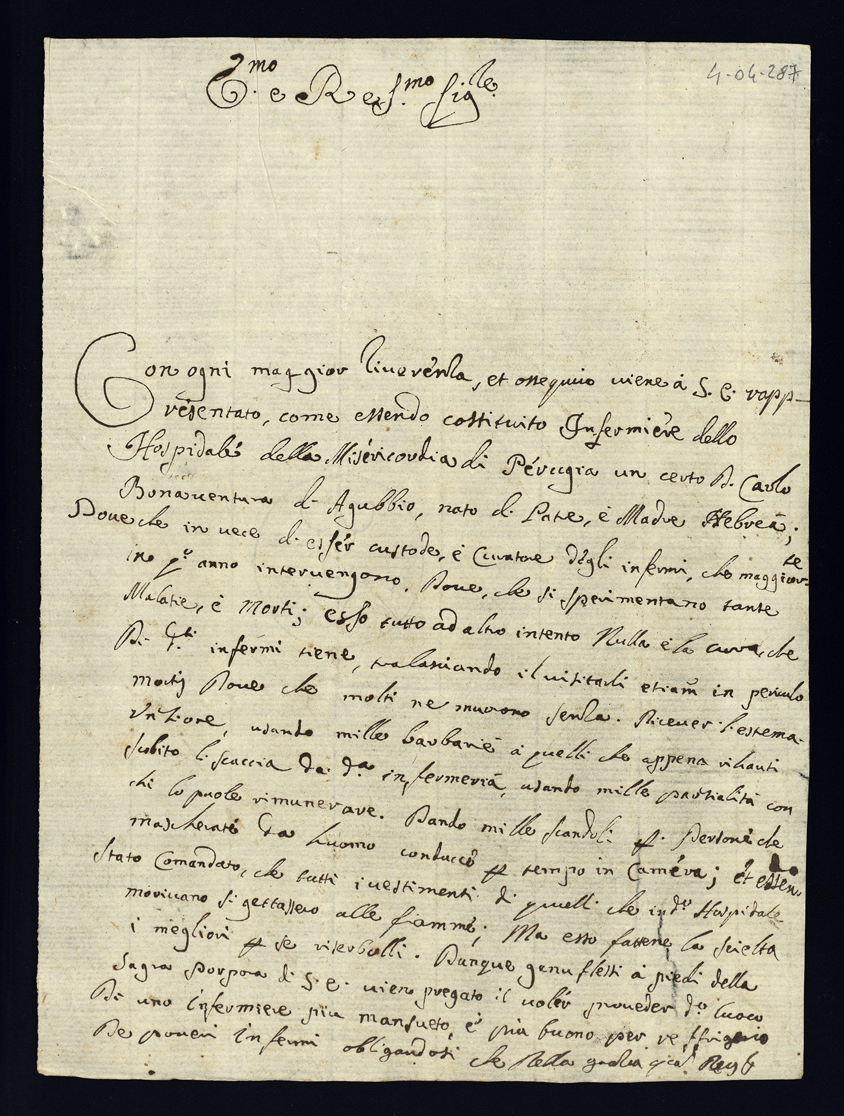 4-04-287
E.mo e Re s.mo Sig.le
Con ogni maggior riverenza, et ossequio viene à S. E. rapp-
résentato, come essendo costituito Infermiere dello
Hospidalé della Miséricordia di Pérugia un certo D. Carlo
Bonaventura di Agubbio, nato di Pate, è Madre Hebrea;
Doue che in uece di essér custode, é Curatore dégli infermi, che maggior.te
in q.o anno interuengono. Doue, che si sperimentano tante
Malatie, é Morti; esso tutto ad altro intento Nulla é la cura, che
Di q.ti infermi tiene, tralasciando il uisitarli etiam in periculo
mortis Doue che molti ne muorono senza. Riceuer l'estema
Untione, usando mille barbarie à quelli che appena rihauti
subito li scaccia Da d.a infermeria, usando mille partialità con
chi lo puole rimunerare. Dando mille scandoli p. Persone che
mascherate Da huomo conducce p tempo in Caméra; ét essen.
Stato Comandato, che tutti i uestimenti di quelli che in d.o Hospidale
moriuano si gettassero alle fiammé; Ma esso fattene la scielta
i megliori p se riserbolli. Dunque genuflessi à piedi della
Sagra porpora di S. E. uiene pregato il uolér proueder d.o luoco
Di uno Infermiere più mansueto, é più buono per reffrigerio
De poueri Infermi obligandosi che Nella